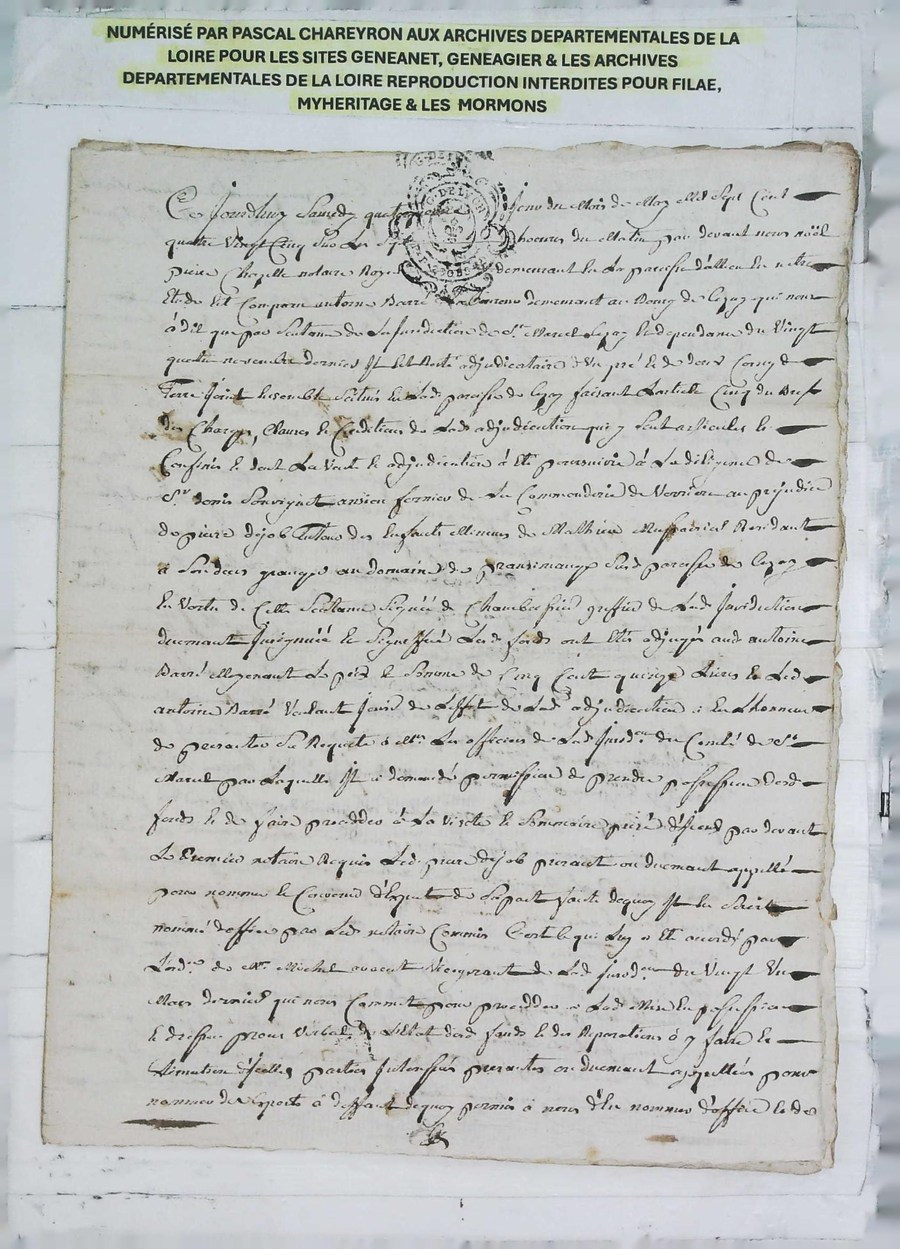 NUMÉRISÉ PAR PASCAL CHAREYRON AUX ARCHIVES DEPARTEMENTALES DE LA
LOIRE POUR LES SITES GENEANET, GENEAGIER & LES ARCHIVES
DEPARTEMENTALES DE LA LOIRE REPRODUCTION INTERDITES POUR FILAE,
MYHERITAGE & LES MORMONS
G. DE LYON
Ce Jourdhuy Samedy jour du Mois de May mil Sept Cent
quatre Vingt Cinq Sur Les heures du Matin par devant nous noël
pierre Chapelle notaire Royal demeurant en La paroisse
Etude Est Comparu antoine Barré demeurant au Bourg de qui nous
à dit que par Sentence de La Juridiction de St. Marcel dependance du Vingt
quatre novembre dernier Il Est Resté adjudicataire d'Un pré & de deux
Terre Joint Ensemble Scitués En Lad. paroisse de faisant L'article Cinq du
des Charges, Clauses & Conditions de Lad. adjudication qui y Sont articulés &
Confinés & dont La Vente & adjudication à Eté poursuivie à La diligence de
Sr. denis Souvignet ancien fermier de La Commanderie de Verrière au préjudice
de pierre dejob Tuteur des Enfants Mineurs de Mathieu Résidant
a Son deces granger au domaine de Susd. paroisse de
En Vertu de Cette Sentence Signée de greffier de Lad. Juridiction
duement & Signiffiée Lesd. fonds ont Etés adjugés aud. antoine
Barré Moyenant Le prix & Somme de Cinq Cent quinze Livres & Led.
antoine Barré Voulant Jouir de L'effet de Lad. adjudication a Eu L'honneur
de presenter Sa Requete à Mrs. Les officiers de Lad. Jurion. du Comté de St.
Marcel par Laquelle Il a demandé permission de prendre possession desd.
fonds & de faire proceder à La Visite & Sommaire prisé d'iceux par devant
Le Premier notaire Requis Led. pierre dejob present ou duement appellé
pour nommer & Convenir d'Expert de Sa part faute dequoy Il En Seroit
nommé d'office par Led. notaire Commis C'est Ce qui Luy a Eté accordé par
L'ordce. de Mr. Michel avocat de Lad. Jurion. du Vingt Un
Mars dernier qui nous Commet pour proceder a Lad. Mise En possession
& dresser procès Verbal de L'Etat desd. fonds & des Reparations à y faire &
Estimation d'icelles parties Interessées presentes ou duement appellées pour
nommer des Experts à deffaut dequoy permis à nous d'En nommer d'office & de